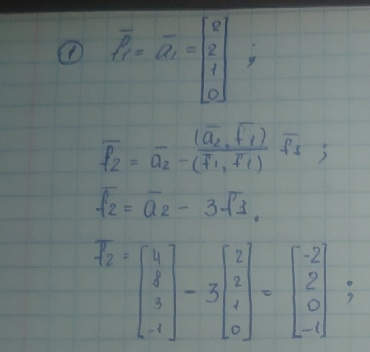 ① f̄₁ = ā₁ = [2 2 1 0] ;
f̄₂ = ā₂ − (ā₂, f̄₁)/(f̄₁, f̄₁) f̄₁ ;
f̄₂ = ā₂ − 3f̄₁.
f̄₂ = [4 8 3 -1] − 3 [2 2 1 0] = [-2 2 0 -1] ;